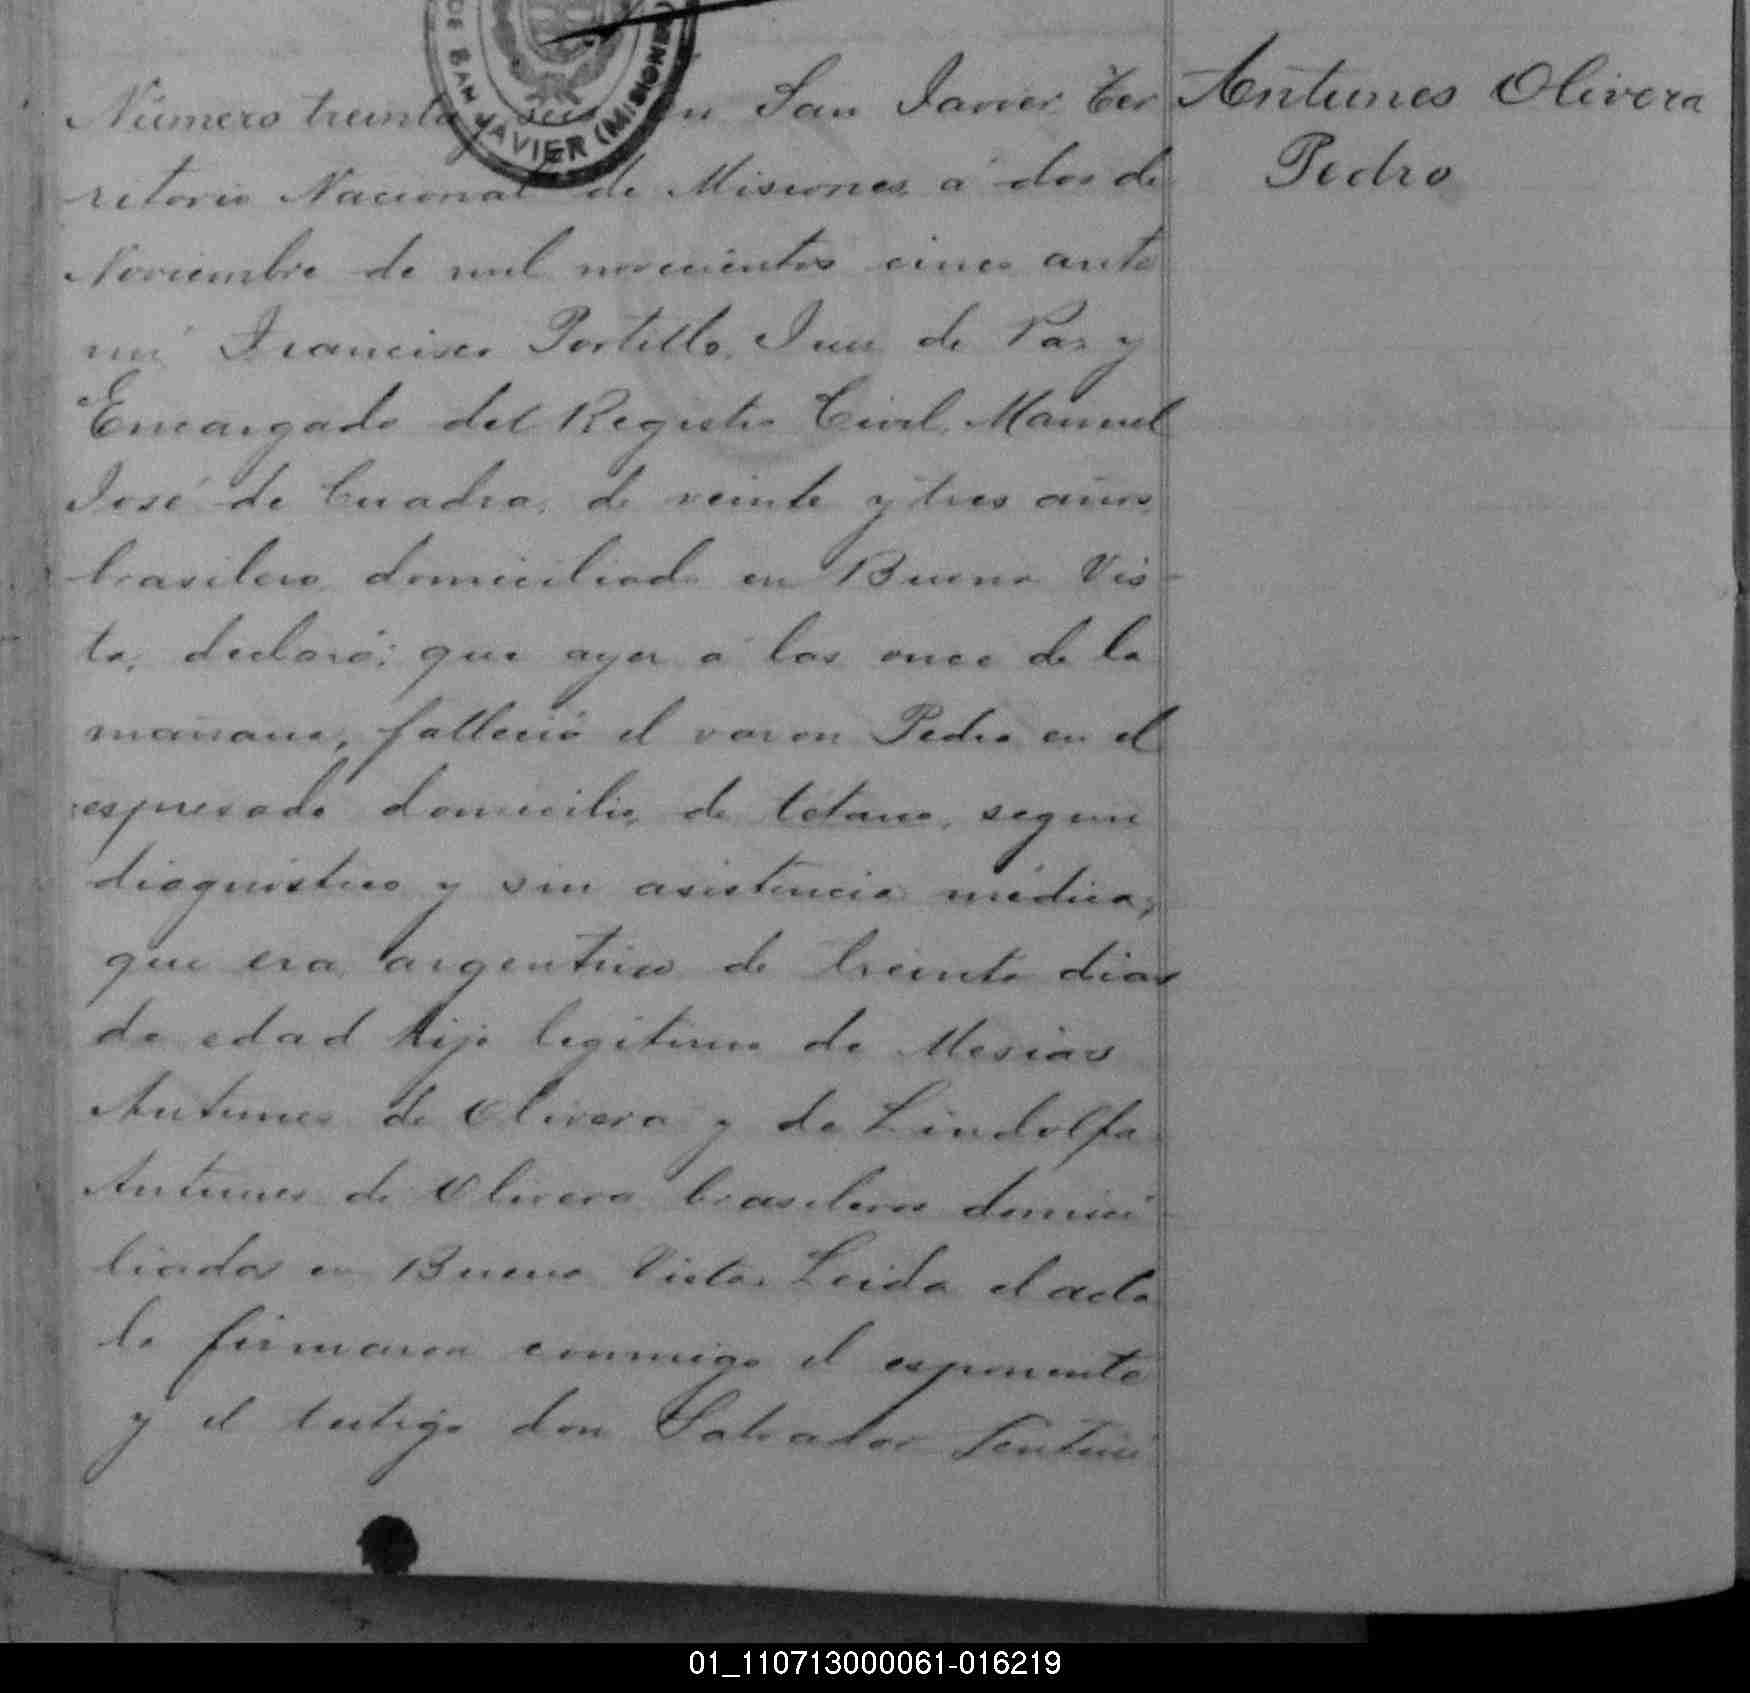 DE SAN JAVIER (MISIONES)
Número treinta y seis En San Javier Ter
ritorio Nacional de Misiones á dos de
Noviembre de mil novecientos cinco ante
mi Francisco Portillo, Juez de Paz y
Encargado del Registro Civil, Manuel
José de Cuadra, de veinte y tres años
brasilero domiciliado en Buena Vis-
ta, declaró; que ayer á las once de la
mañana, falleció el varon Pedro en el
espresado domicilio, de tétano, segun
diagnóstico y sin asistencia médica,
que era argentino de treinta dias
de edad hijo legítimo de Mesias
Antunes de Olivera y de Lindolfa
Antunes de Olivera brasileros domici-
liados en Buena Vista. Leida el acta
la firmaron conmigo el esponente
y el testigo don Salvador
Antunes Olivera
Pedro
01_110713000061-016219